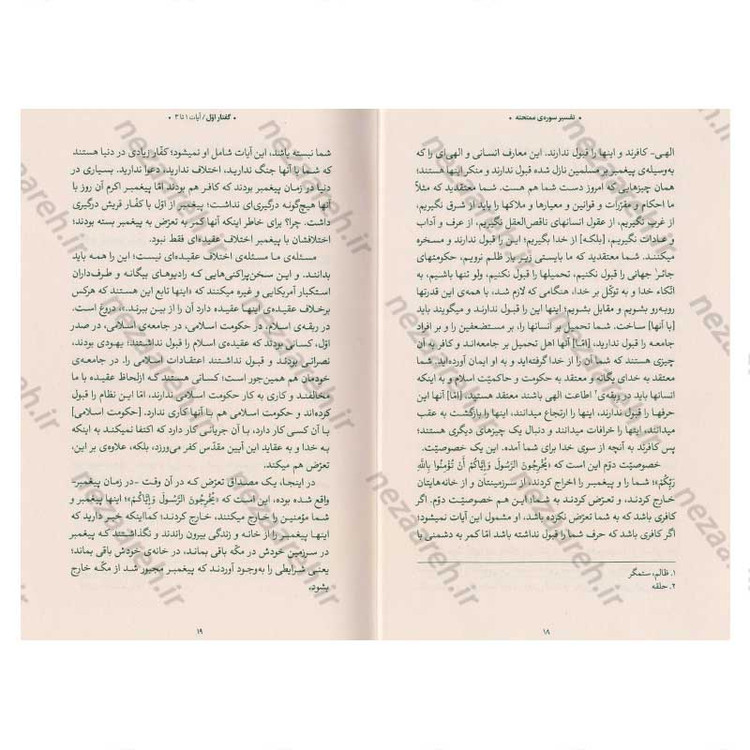 • تفسیر سوره‌ی ممتحنه •
الهی- کافرند و اینها را قبول ندارند. این معارف انسانی و الهی‌ای را که
به‌وسیله‌ی پیغمبر بر مسلمین نازل شده قبول ندارند و منکر اینها هستند؛
همان چیزهایی که امروز دست شما هم هست. شما معتقدید که مثلاً
ما احکام و مقرّرات و قوانین و معیارها و ملاکها را باید از شرق نگیریم،
از غرب نگیریم، از عقول انسانهای ناقص‌العقل نگیریم، از عرف و آداب
و عادات نگیریم، [بلکه] از خدا بگیریم؛ این را قبول ندارند و مسخره
میکنند. شما معتقدید که ما بایستی زیر بار ظلم نرویم، حکومتهای
جائر¹ جهانی را قبول نکنیم، تحمیلها را قبول نکنیم، ولو تنها باشیم، به
اتّکاء خدا و به توکّل بر خدا، هنگامی که لازم شد، با همه‌ی این قدرتها
روبه‌رو بشویم و مقابل بشویم؛ اینها این را قبول ندارند و میگویند باید
[با آنها] ساخت. شما تحمیل بر انسانها را، بر مستضعفین را و بر افراد
جامعه را قبول ندارید، [امّا] آنها اهل تحمیل بر جامعه‌اند و کافر به آن
چیزی هستند که شما آن را از خدا گرفته‌اید و به او ایمان آورده‌اید. شما
معتقد به خدای یگانه و معتقد به حکومت و حاکمیّت اسلام و به اینکه
انسانها باید در ربقه‌ی² اطاعت الهی باشند معتقد هستید، [امّا] آنها این
حرفها را قبول ندارند، اینها را ارتجاع میدانند، اینها را بازگشت به عقب
میدانند، اینها را خرافات میدانند و دنبال یک چیزهای دیگری هستند؛
پس کافرند به آنچه از سوی خدا برای شما آمده. این یک خصوصیّت.
خصوصیّت دوّم این است که «یُخرِجونَ الرَّسولَ وَ اِیّاکُم اَن تُؤمِنوا بِاللَّهِ
رَبِّکُم»؛ شما را و پیغمبر را اخراج کردند، از سرزمینتان و از خانه‌هایتان
خارج کردند، و تعرّض کردند به شما؛ این هم خصوصیّت دوّم. اگر
کافری باشد که به شما تعرّض نکرده باشد، او مشمول این آیات نمیشود؛
اگر کافری باشد که حرف شما را قبول نداشته باشد امّا کمر به دشمنی با
۱. ظالم، ستمگر
۲. حلقه
۱۸
• گفتار اوّل / آیات ۱ تا ۳ •
شما نبسته باشد، این آیات شامل او نمیشود؛ کفّار زیادی در دنیا هستند
که شما با آنها جنگ ندارید، اختلاف ندارید، دعوا ندارید. بسیاری در
دنیا در زمان پیغمبر بودند که کافر هم بودند امّا پیغمبر اکرم آن روز با
آنها هیچ‌گونه درگیری‌ای نداشت؛ پیغمبر از اوّل با کفّار قریش درگیری
داشت. چرا؟ برای خاطر اینکه آنها کمر به تعرّض به پیغمبر بسته بودند؛
اختلافشان با پیغمبر اختلاف عقیده‌ای فقط نبود.
مسئله‌ی ما مسئله‌ی اختلاف عقیده‌ای نیست؛ این را همه باید
بدانند. و این سخن‌پراکنی‌هایی که رادیوهای بیگانه و طرف‌داران
استکبار آمریکایی و غیره میکنند که «اینها تابع این هستند که هرکس
برخلاف عقیده‌ی اینها عقیده دارد آن را از بین ببرند.»، دروغ است.
در ربقه‌ی اسلام، در حکومت اسلامی، در جامعه‌ی اسلامی، در صدر
اوّل، کسانی بودند که عقیده‌ی اسلام را قبول نداشتند؛ یهودی بودند،
نصرانی بودند و قبول نداشتند اعتقادات اسلامی را. در جامعه‌ی
خودمان هم همین‌جور است؛ کسانی هستند که ازلحاظ عقیده با ما
مخالفند و کاری به کار حکومت اسلامی ندارند، امّا نظام را قبول
کرده‌اند و حکومت اسلامی هم با آنها کاری ندارد. [حکومت اسلامی]
با آن کسی کار دارد، با آن جریانی کار دارد که اکتفا نمیکند به اینکه
به خدا و به عقاید این آیین مقدّس کفر می‌ورزد، بلکه، علاوه‌ی بر این،
تعرّض هم میکند.
در اینجا، یک مصداق تعرّض که در آن وقت -در زمان پیغمبر-
واقع شده بوده، این است که «یُخرِجونَ الرَّسولَ وَ اِیّاکُم»؛ اینها پیغمبر و
شما مؤمنین را خارج میکنند، خارج کردند؛ کمااینکه خبر دارید که
اینها پیغمبر را از خانه و زندگی بیرون راندند و نگذاشتند که پیغمبر
در سرزمین خودش در مکّه باقی بماند، در خانه‌ی خودش باقی بماند؛
یعنی شرایطی را به‌وجود آوردند که پیغمبر مجبور شد از مکّه خارج
بشود.
۱۹
nezaareh.ir